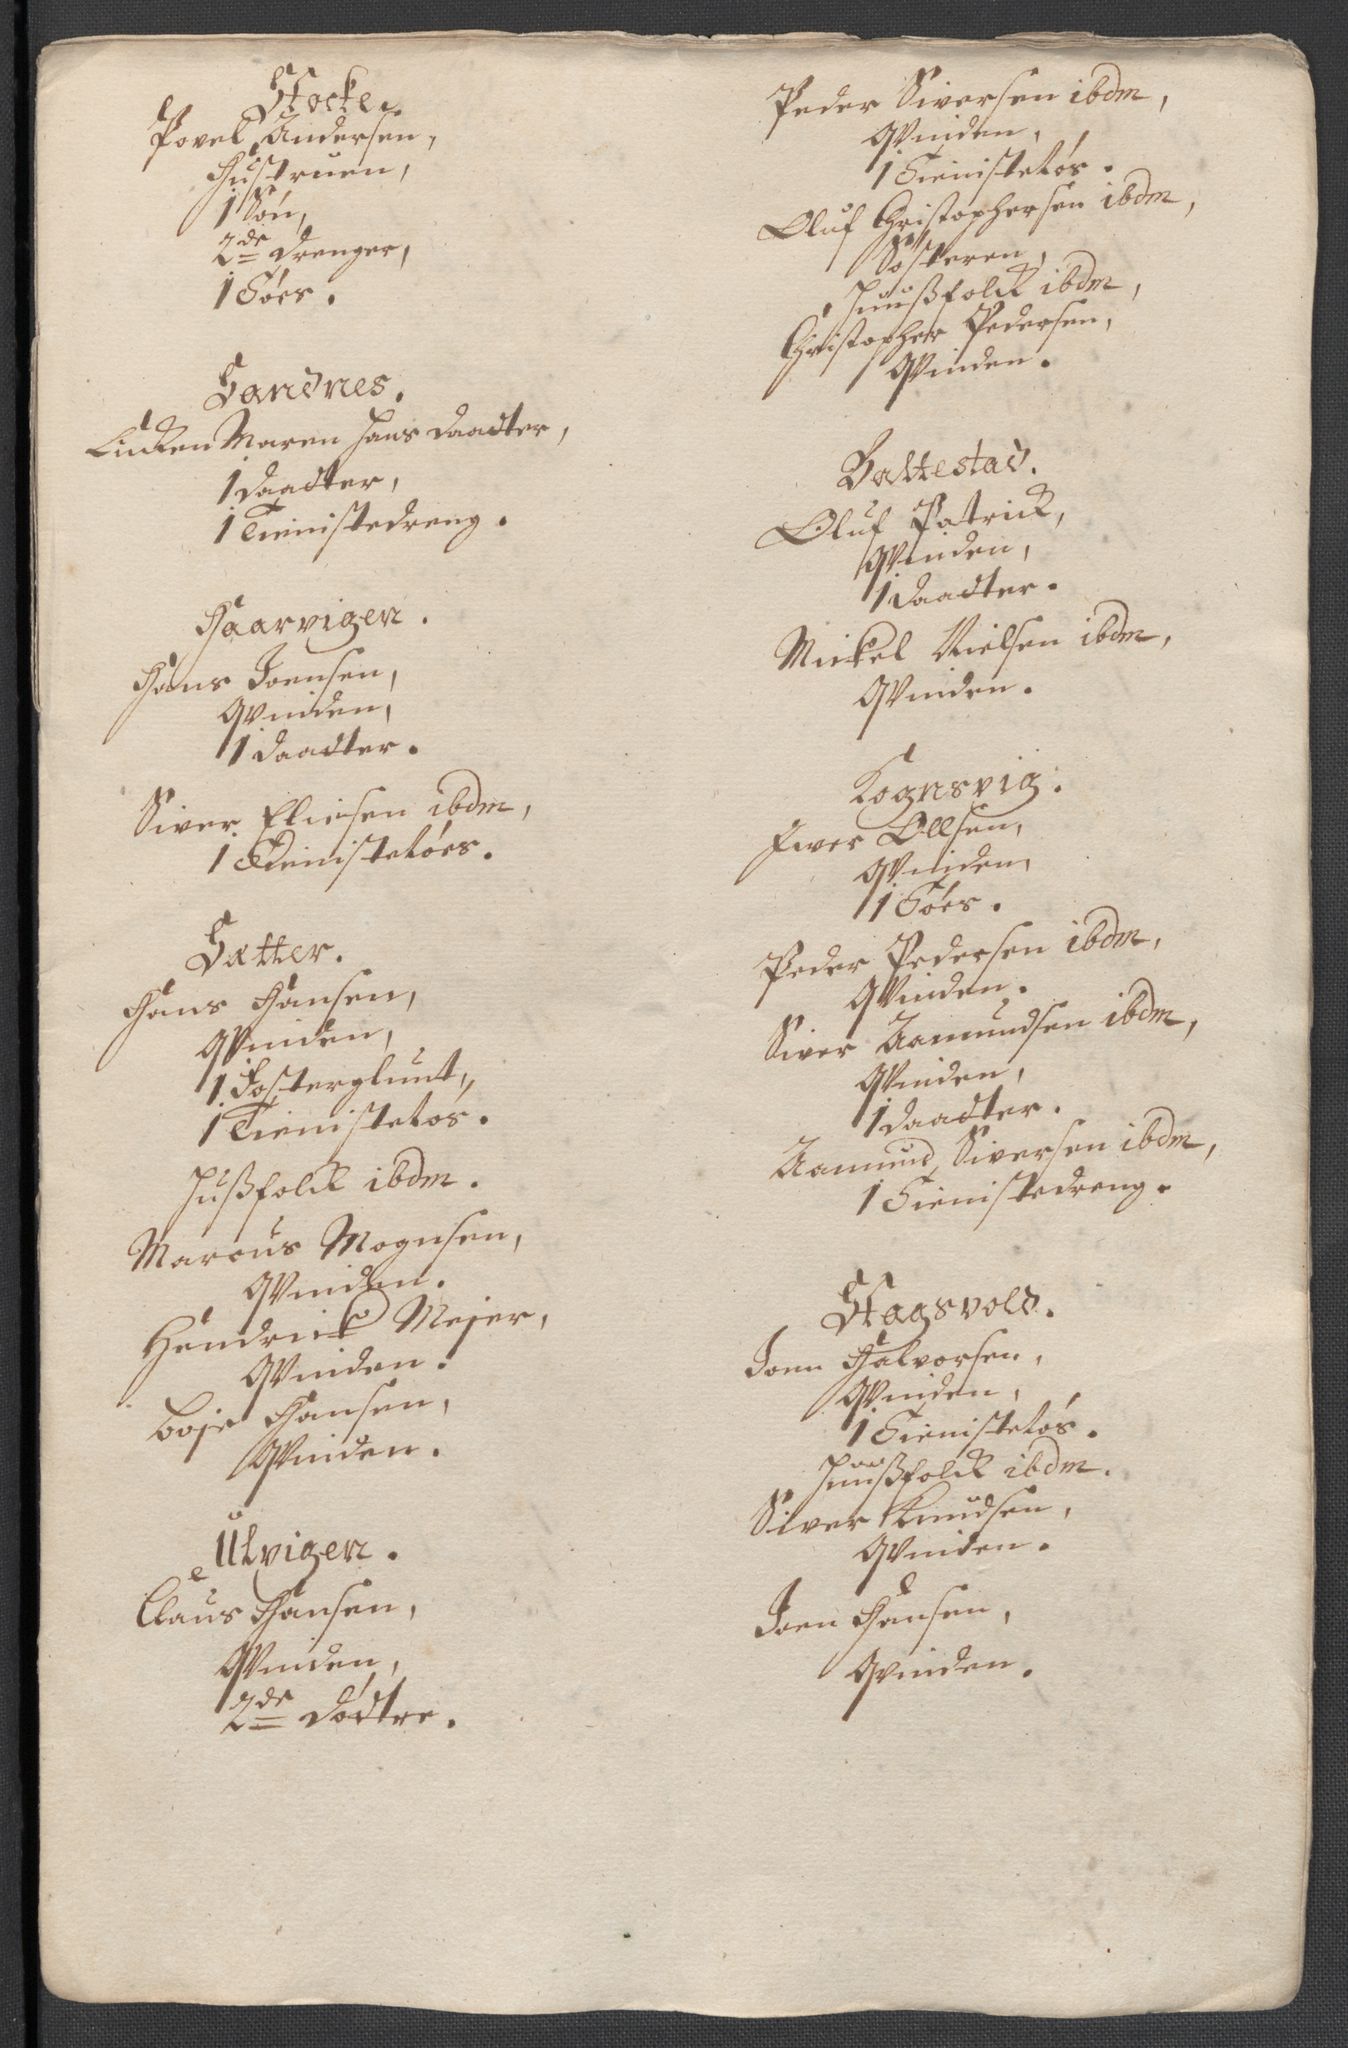 Stocke.
Povel Andersen,
Hustruen,
1 Søn,
2de drenger,
1 Tøes.
Sandnes.
Encken Maren Hans daadter,
1 daadter,
1 Tienistedreng.
Haarvigen.
Hans Joensen,
Qvinden,
1 daadter.
Siver Eliesen ibdm,
1 Tienistetøes.
Sætter.
Hans Hansen,
Qvinden,
1 Fosterglunt,
1 Tienistetøs.
Hußfolck ibdm.
Marcus Mognsen,
Qvinden.
Hendrick Mejer,
Qvinden.
Boje Hansen,
Qvinden.
Ulvigen.
Claus Hansen,
Qvinden,
2de Dødtre.
Peder Siversen ibdm,
Qvinden,
1 Tienistetøs.
Oluf Christophersen ibdm,
Søsteren,
Huußfolck ibdm,
Christopher Pedersen,
Qvinden.
Battestad.
Oluf Patrick,
Qvinden,
1 daadter.
Mickel Nielsen ibdm,
Qvinden.
Kognsvig.
Iver Ollsen,
Qvinden,
1 Tøes.
Peder Pedersen ibdm,
Qvinden.
Siver Aamundsen ibdm,
Qvinden,
1 daadter.
Aamund Siversen ibdm,
1 Tienistedreng.
Stagsvold.
Joen Halvorsen,
Qvinden,
1 Tienistetøs.
Huußfolck ibdm.
Siver Knudsen,
Qvinden.
Joen Hansen,
Qvinden.